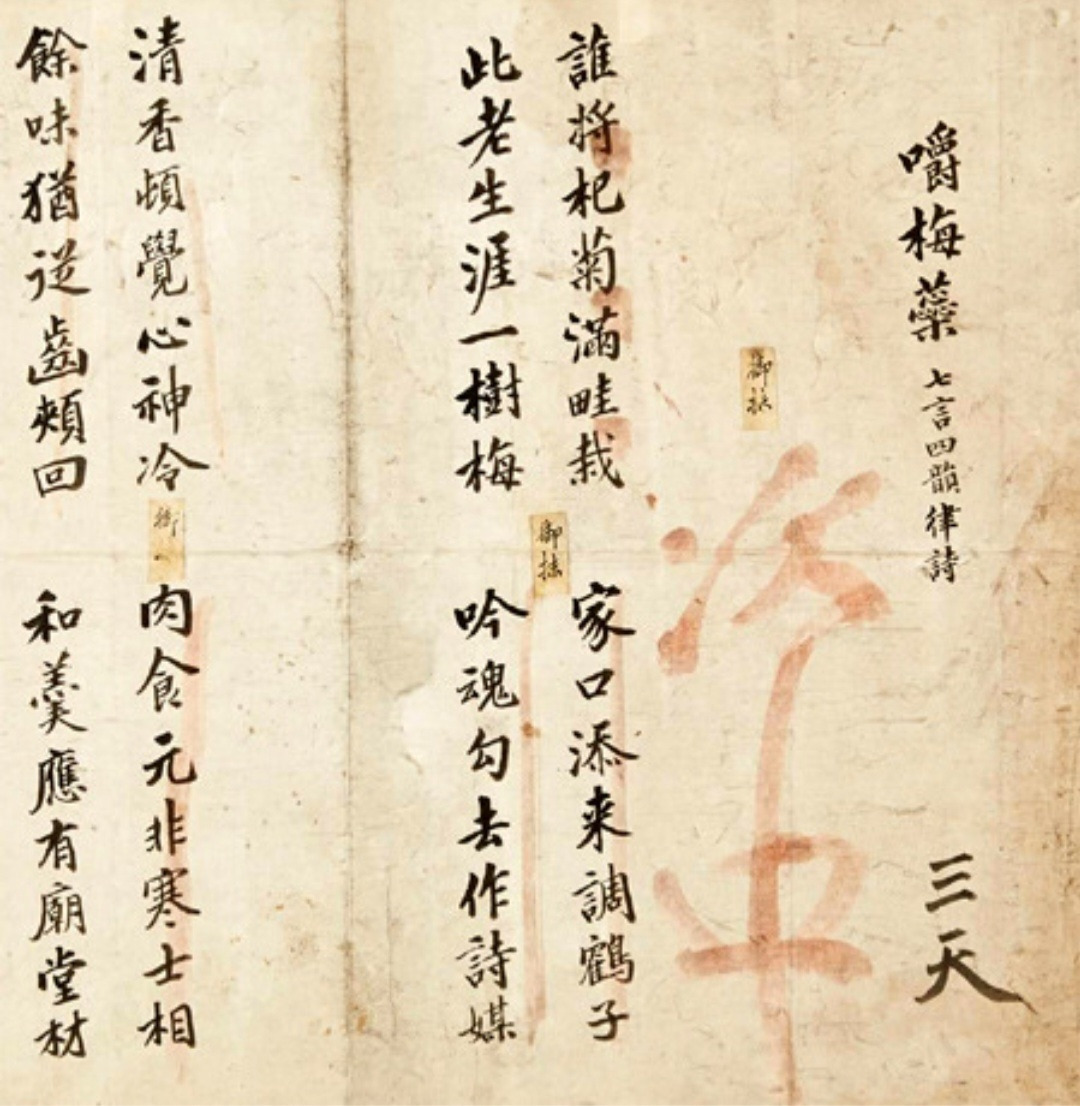 嚼梅蘂 七言四韻律詩
三天
御批
次上
誰将杞菊滿畦栽
此老生涯一樹梅
御抹
家口添来調鶴子
吟魂勾去作詩媒
清香頓覺心神冷
餘味猶從齒頰回
御
肉食元非寒士相
和羹應有廟堂材